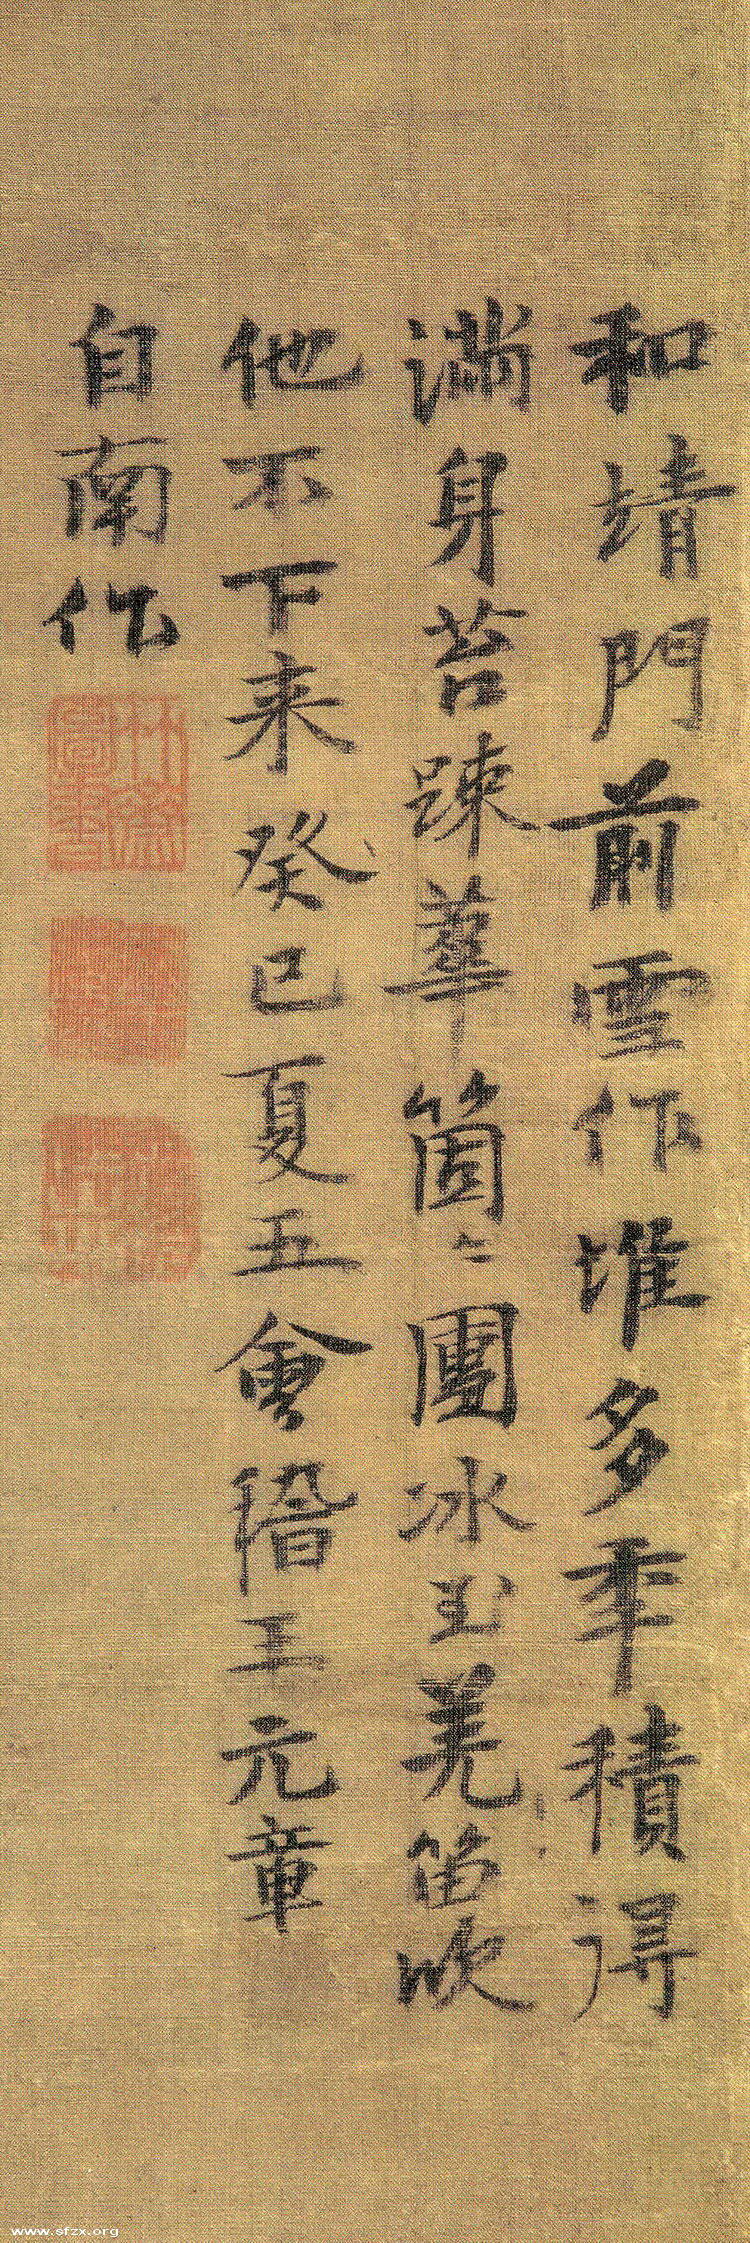 和靖門前雪作堆多年積得
滿身苔疎華箇〻團冰玉羌笛吹
他不下来癸巳夏五會稽王元章
自南作
www.sfzx.org